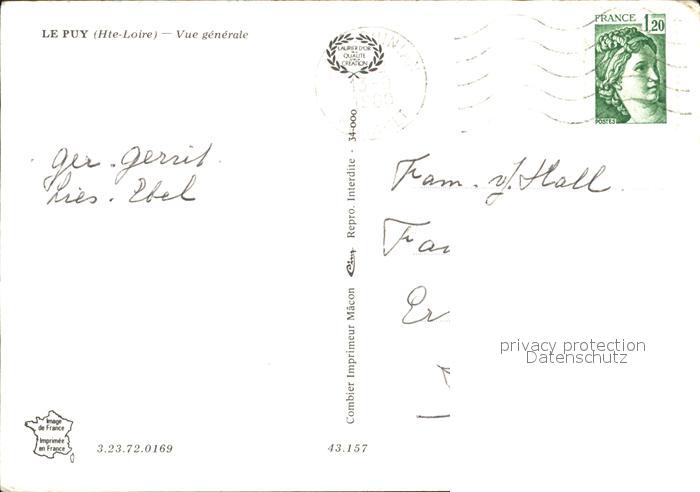 LE PUY (Hte-Loire) — Vue générale
LAURIER D'OR
DE LA
QUALITÉ
CRÉATION
FRANCE
1,20
POSTES
Ger. Gerrit.
Lies. Ebel
Combier Imprimeur Mâcon Cim Repro. Interdite - 34-000
Fam. v/. Hall.
Fa
Er
privacy protection
Datenschutz
Image
de France
Imprimée
en France
3.23.72.0169
43.157